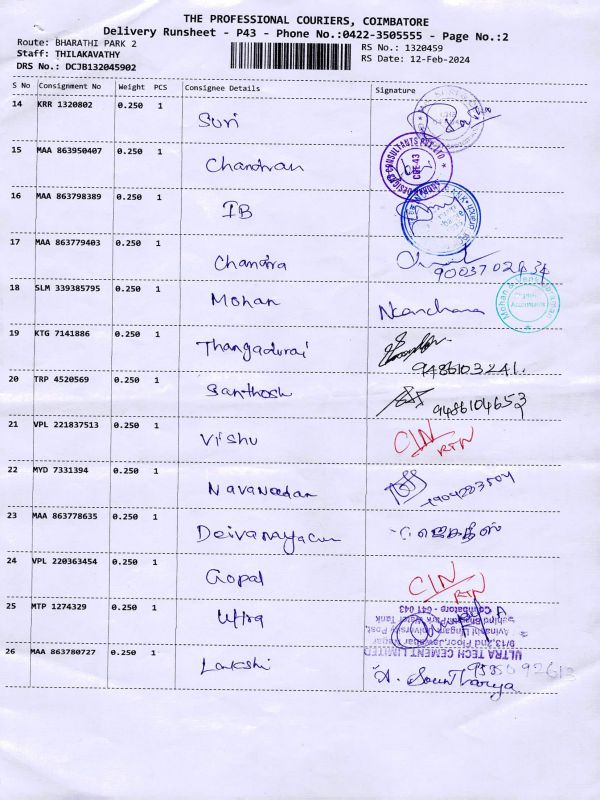 THE PROFESSIONAL COURIERS, COIMBATORE
Delivery Runsheet - P43 - Phone No.:0422-3505555 - Page No.:2
Route: BHARATHI PARK 2 RS No.: 1320459
Staff: THILAKAVATHY RS Date: 12-Feb-2024
DRS No.: DCJB132045902
S No Consignment No Weight PCS Consignee Details Signature
14 KRR 1320802 0.250 1 Suri
15 MAA 863950407 0.250 1 Chandran
16 MAA 863798389 0.250 1 IB
17 MAA 863779403 0.250 1 Chandra
18 SLM 339385795 0.250 1 Mohan
19 KTG 7141886 0.250 1 Thangadurai
9486103241.
20 TRP 4520569 0.250 1 Santhosh 9486104653
21 VPL 221837513 0.250 1 Vishu CIN/RTN
22 MYD 7331394 0.250 1
23 MAA 863778635 0.250 1 ஜெகதீஸ்
24 VPL 220363454 0.250 1 Gopal CIN/RTN
25 MTP 1274329 0.250 1
Coimbatore - 641 043
ULTRA TECH CEMENT LIMITED
26 MAA 863780727 0.250 1 Lakshi
A. Sountharya